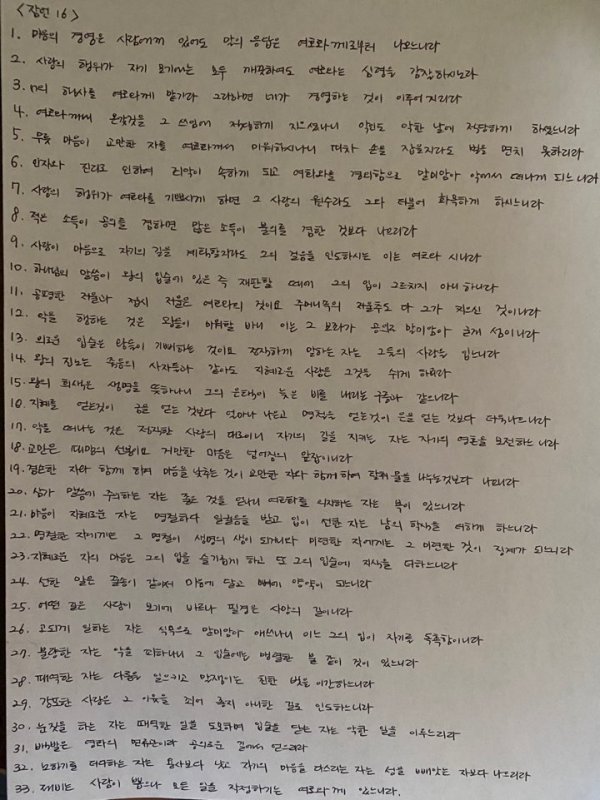 <잠언 16>
1. 마음의 경영은 사람에게 있어도 말의 응답은 여호와께로부터 나오느니라
2. 사람의 행위가 자기 보기에는 모두 깨끗하여도 여호와는 심령을 감찰하시느니라
3. 너의 행사를 여호와께 맡기라 그리하면 네가 경영하는 것이 이루어지리라
4. 여호와께서 온갖것을 그 쓰임에 적당하게 지으셨나니 악인도 악한 날에 적당하게 하셨느니라
5. 무릇 마음이 교만한 자를 여호와께서 미워하시나니 피차 손을 잡을지라도 벌을 면치 못하리라
6. 인자와 진리로 인하여 죄악이 속하게 되고 여호와를 경외함으로 말미암아 악에서 떠나게 되느니라
7. 사람의 행위가 여호와를 기쁘시게 하면 그 사람의 원수라도 그와 더불어 화목하게 하시느니라
8. 적은 소득이 공의를 겸하면 많은 소득이 불의를 겸한 것보다 나으리라
9. 사람이 마음으로 자기의 길을 계획할지라도 그의 걸음을 인도하시는 이는 여호와 시니라
10. 하나님의 말씀이 왕의 입술에 있은 즉 재판할 때에 그의 입이 그르치지 아니 하니라
11. 공평한 저울과 접시 저울은 여호와의 것이요 주머니속의 저울추도 다 그가 지으신 것이니라
12. 악을 행하는 것은 왕들이 미워할 바니 이는 그 보좌가 공의로 말미암아 굳게 섬이니라
13. 의로운 입술은 왕들이 기뻐하는 것이요 정직하게 말하는 자는 그들의 사랑을 입느니라
14. 왕의 진노는 죽음의 사자들과 같아도 지혜로운 사람은 그것을 쉬게 하리라
15. 왕의 희색은 생명을 뜻하나니 그의 은택이 늦은 비를 내리는 구름과 같으니라
16. 지혜를 얻는것이 금을 얻는 것보다 얼마나 나은고 명철을 얻는것이 은을 얻는 것보다 더욱나으니라
17. 악을 떠나는 것은 정직한 사람의 대로이니 자기의 길을 지키는 자는 자기의 영혼을 보전하느니라
18. 교만은 패망의 선봉이요 거만한 마음은 넘어짐의 앞잡이니라
19. 겸손한 자와 함께 하여 마음을 낮추는 것이 교만한 자와 함께 하여 탈취물을 나누는것보다 나으니라
20. 삼가 말씀에 주의하는 자는 좋은 것을 얻나니 여호와를 의지하는 자는 복이 있느니라
21. 마음이 지혜로운 자는 명철하다 일컬음을 받고 입이 선한 자는 남의 학식을 더하게 하느니라
22. 명철한 자에게는 그 명철이 생명의 샘이 되거니와 미련한 자에게는 그 미련한 것이 징계가 되느니라
23. 지혜로운 자의 마음은 그의 입을 슬기롭게 하고 또 그의 입술에 지식을 더하느니라
24. 선한 말은 꿀송이 같아서 마음에 달고 뼈에 양약이 되느니라
25. 어떤 길은 사람이 보기에 바르나 필경은 사망의 길이니라
26. 고되게 일하는 자는 식욕으로 말미암아 애쓰나니 이는 그의 입이 자기를 독촉함이니라
27. 불량한 자는 악을 꾀하나니 그 입술에는 맹렬한 불 같은 것이 있느니라
28. 패역한 자는 다툼을 일으키고 말쟁이는 친한 벗을 이간하느니라
29. 강포한 사람은 그 이웃을 꾀어 좋지 아니한 길로 인도하느니라
30. 눈짓을 하는 자는 패역한 일을 도모하며 입술을 닫는 자는 악한 일을 이루느니라
31. 백발은 영화의 면류관이라 공의로운 길에서 얻으리라
32. 노하기를 더디하는 자는 용사보다 낫고 자기의 마음을 다스리는 자는 성을 빼앗는 자보다 나으니라
33. 제비는 사람이 뽑으나 모든 일을 작정하기는 여호와께 있느니라.